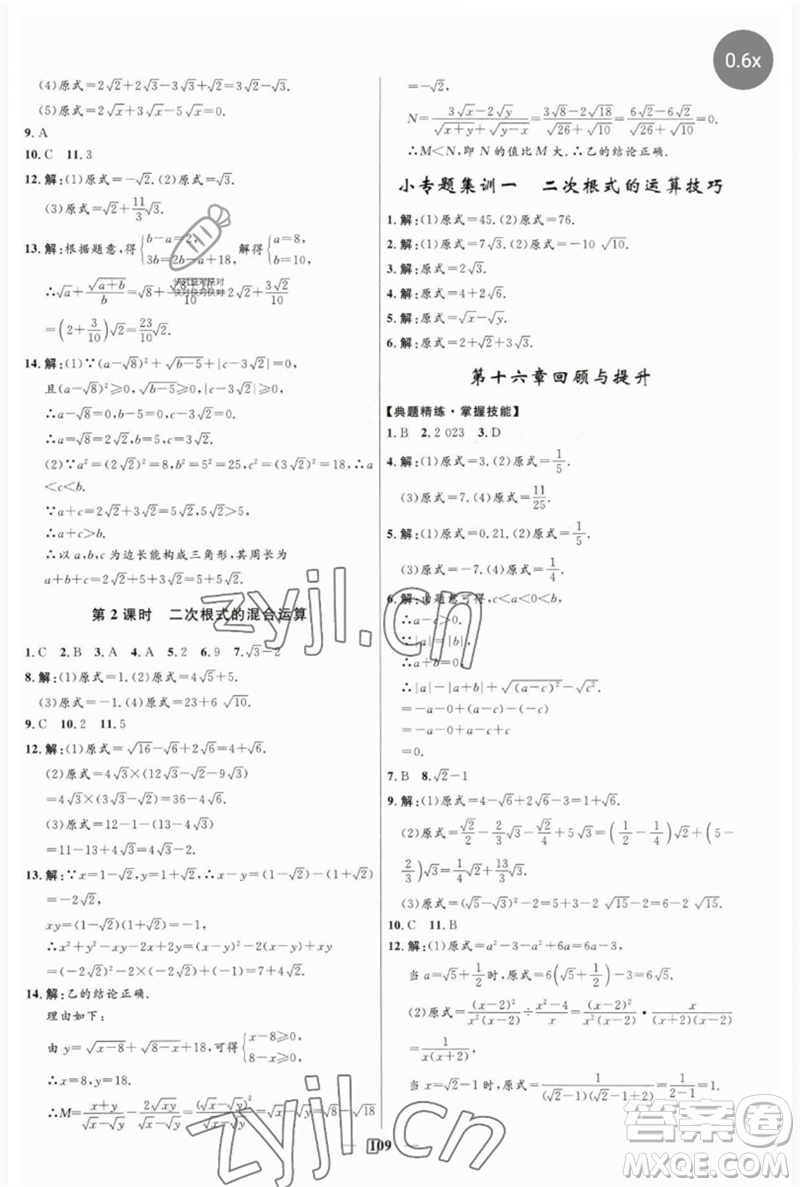 0.6x
(4)原式=2√2+2√3-3√3+√2=3√2-√3.
(5)原式=2√x+3√x-5√x=0.
9. A
10. C 11. 3
12. 解:(1)原式=-√2. (2)原式=6√3.
(3)原式=√2+11/3√3.
13. 解:根据题意,得{b-a=2, 3b=2a-a+18, 解得{a=8, b=10.
∴√a+√(a+b)/b=√8+√(8+10)/10=2√2+3√2/10
快对快对快对
快对快对快对
=(2+3/10)√2=23/10√2.
14. 解:(1)∵(a-√8)²+√(b-5)+|c-3√2|=0,
且(a-√8)²≥0,√(b-5)≥0,|c-3√2|≥0,
∴a-√8=0,b-5=0,c-3√2=0.
∴a=√8=2√2,b=5,c=3√2.
(2)∵a²=(2√2)²=8,b²=5²=25,c²=(3√2)²=18,∴a
<c<b.
∵a+c=2√2+3√2=5√2,5√2>5,
∴a+c>b.
∴以a,b,c为边长能构成三角形,其周长为
a+b+c=2√2+5+3√2=5√2+5.
第2课时 二次根式的混合运算
1. C 2. B 3. A 4. A 5. 2 6. 9 7. √3-2
8. 解:(1)原式=√2. (2)原式=4√5+8√3.
(3)原式=-1. (4)原式=23+6√10.
9. C 10. 2 11. 5
12. 解:(1)原式=√16-√6+2√6=4+√6.
(2)原式=4√3×(12√3-9√3-2√2)
=4√3×(3√3-2√2)=36-4√6.
(3)原式=12-1-(13-4√3)
=11-13+4√3=-2+4√3.
13. 解:∵x=1-√2,y=1+√2,∴x+y=(1-√2)+(1+√2)=2,
xy=(1-√2)(1+√2)=-1.
∴x²+y²-xy-2x-2y=(x+y)²-2(x+y)-3xy
=2²-2×2-3×(-1)=7+
14. 解:乙的结论正确.
理由如下:
由y=√(x-8)+√(8-x)+18,可得{x-8≥0, 8-x≥0.
∴x=8,y=18.
109
=-√2,
N=(3√x-2√y)/(√(x+y)+√(y-x))=(3√8-2√18)/(√26+√10)=(6√2-6√2)/(√26+√10)=0.
∴M<N,即N的值比M大.∴乙的结论正确.
小专题集训一 二次根式的运算技巧
1. 解:(1)原式=45. (2)原式=76.
2. 解:(1)原式=7√3. (2)原式=3√2.
3. 解:原式=2√3.
4. 解:原式=4+2√6.
5. 解:原式=√x-√y.
6. 解:原式=√2+2√3+3√2.
第十六章回顾与提升
【典题精练·掌握技能】
1. B 2. 2 023 3. D
4. 解:(1)原式=3. (2)原式=1/5.
(3)原式=7. (4)原式=11/25.
5. 解:(1)原式=0.21. (2)原式=1/5.
(3)原式=6. (4)原式=2.
6. 解:由题意可得,c<a<0<b,
∴a-c>0.
∵|a|=|b|,
∴a+b=0.
∴|a|-|a+b|+√((a-c)²)-√(c²)
=-a-0+(a-c)-(-c)
=-a-0+a-c+c
=0.
7. B 8. √2-1
9. 解:(1)原式=4-√6+2√6-3=1+√6.
(3)原式=(√5-√3)²-2=8-2√15-2=6-2√15.
10. C 11. B
12. 解:(1)原式=a²-3-a²+6a=6a-3,
当a=√5+1/2时,原式=6(√5+1/2)-3=6√5.
(2)原式=(x-2)²/(x²(x-2))÷(x²-4)/x=(x-2)²/(x²(x-2))·x/((x+2)(x-2))
=1/(x(x+2)).
zyjl.cn
zyjl.cn
答案卷
MXQE.COM